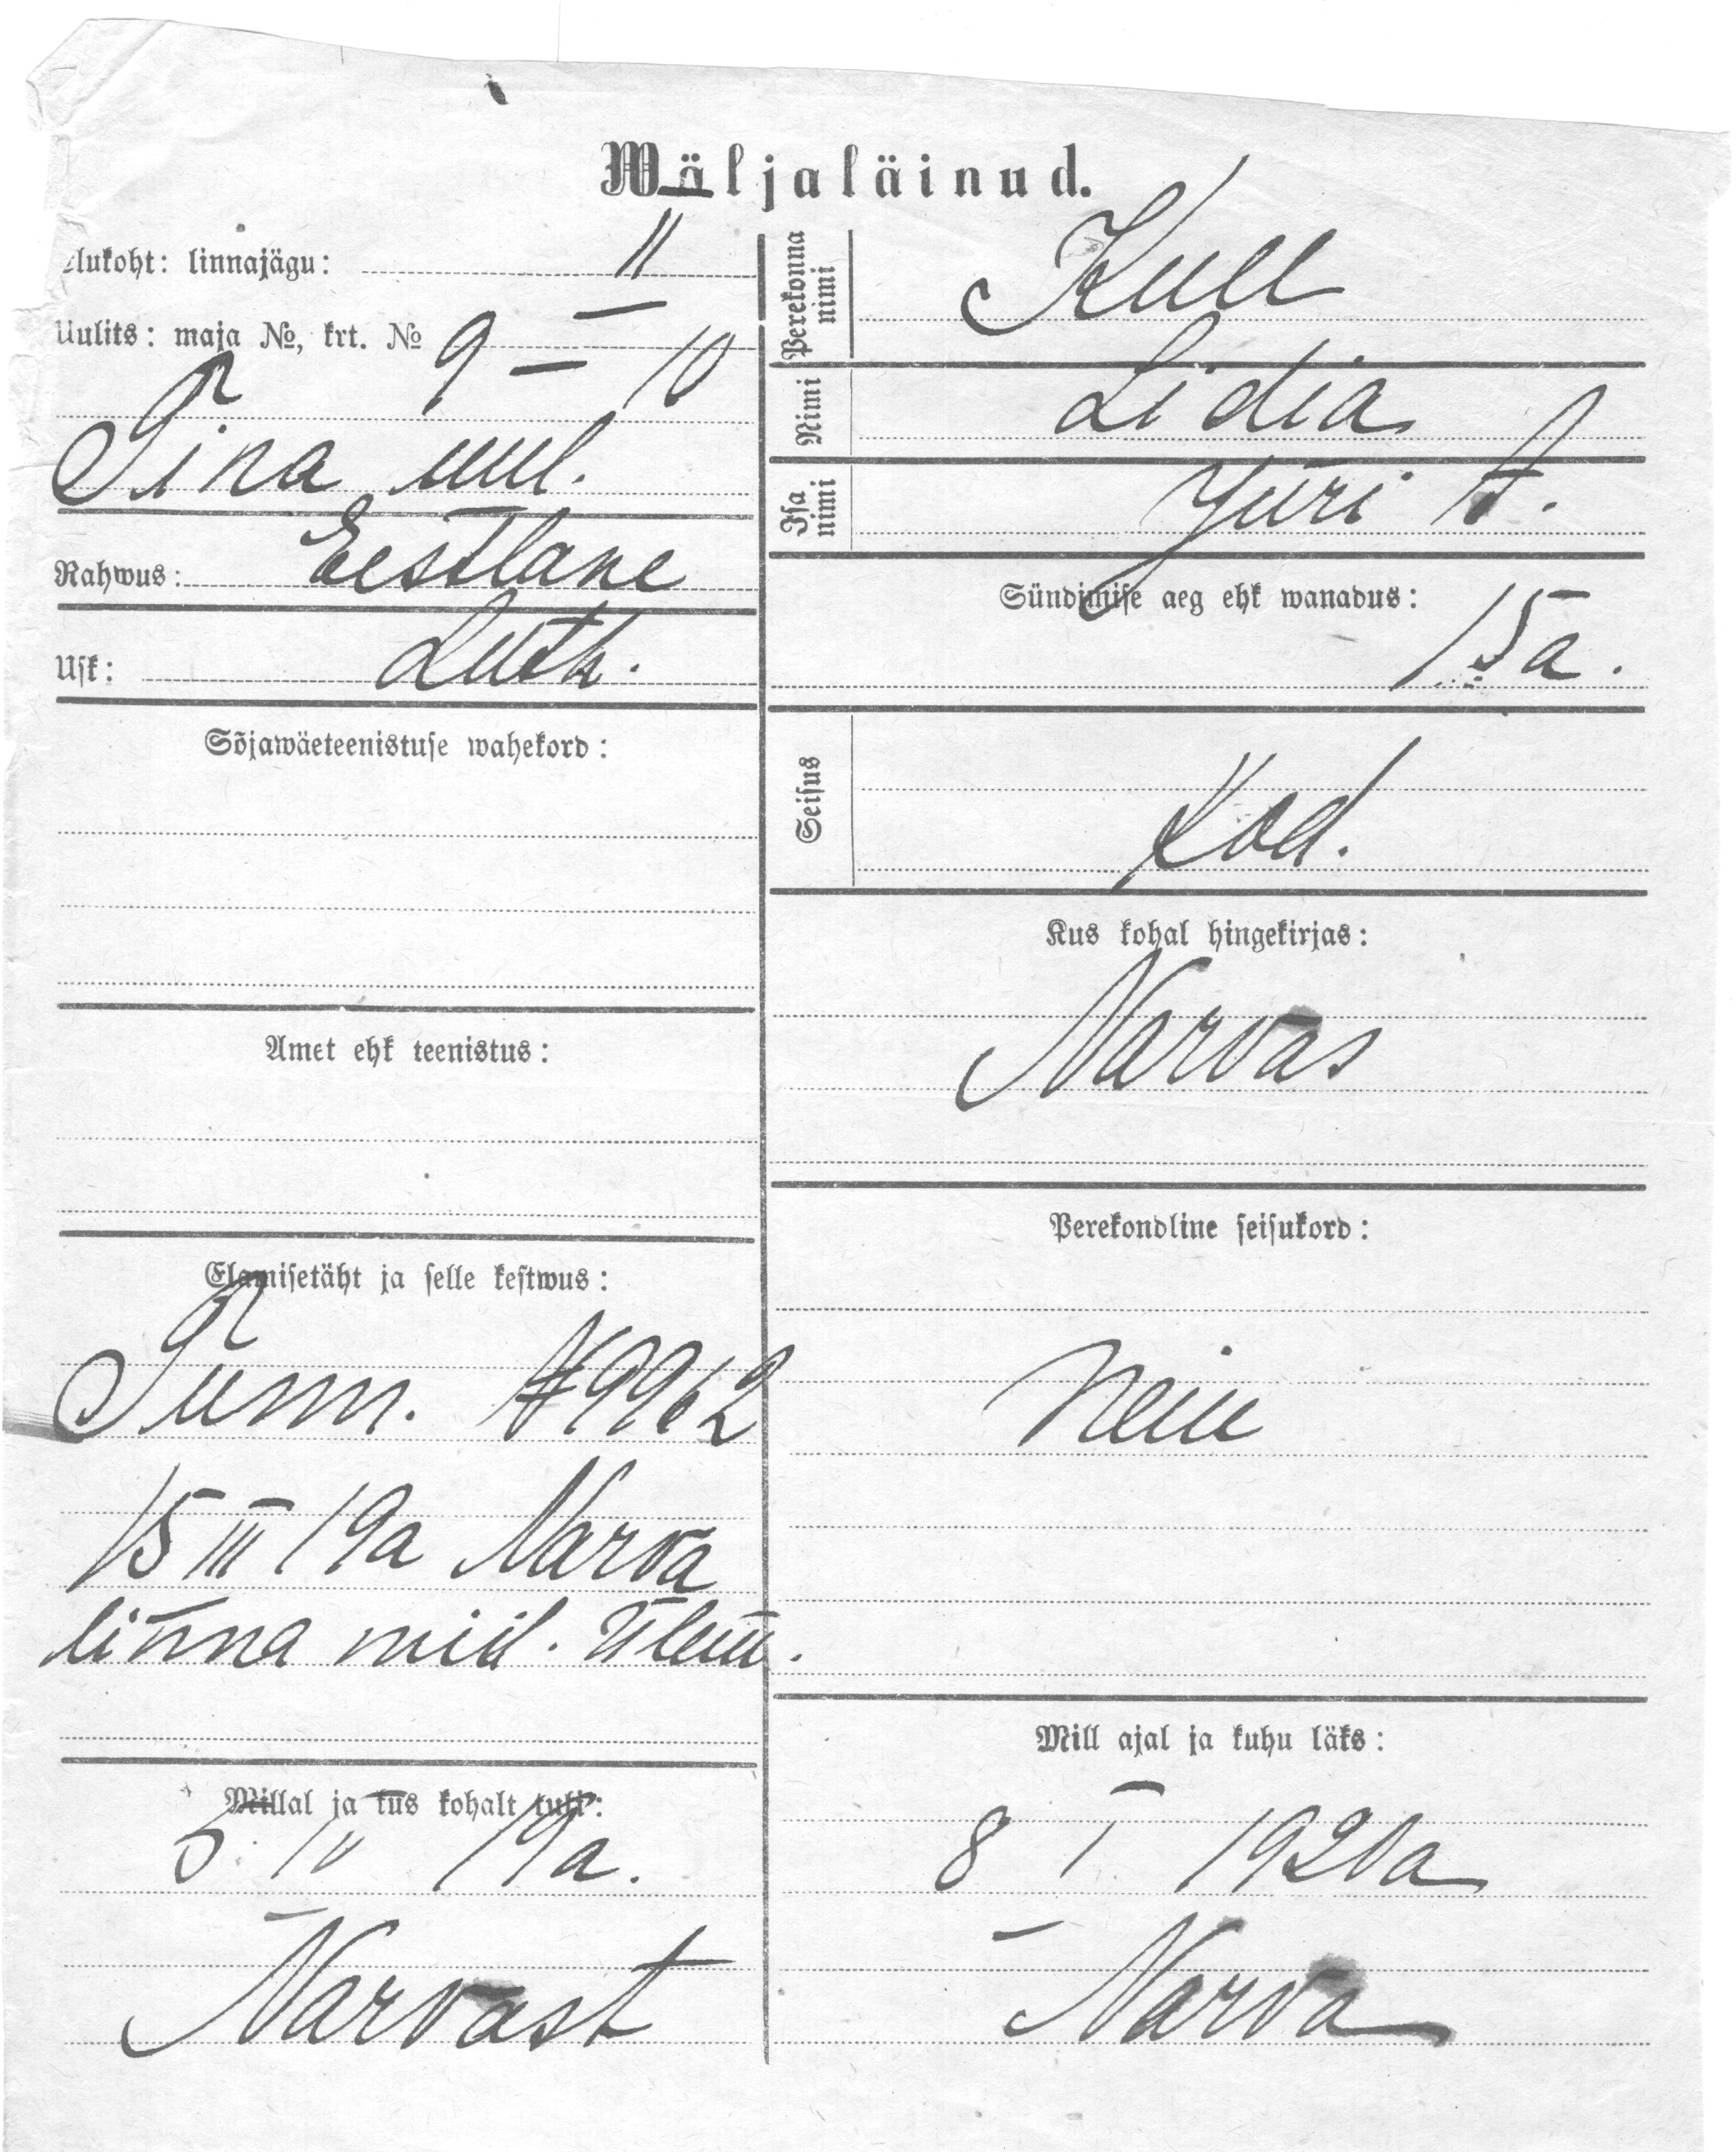 Wäljaläinud.
Elukoht: linnajägu: II
Uulits: maja №, krt. № 9 — 10
Tina uul.
Rahwus: Eestlane
Usk: Luth.
Sõjawäeteenistuse wahekord:
Amet ehk teenistus:
Elamisetäht ja selle kestwus:
Tunn. № 9962
15 III 19a Narva
linna mil. ülem.
Millal ja kus kohalt tuli:
5. IV 19a.
Narvast
Perekonna nimi Kull
Nimi Lidia
Isa nimi Jüri t.
Sündimise aeg ehk wanadus:
15 a.
Seisus
Kod.
Kus kohal hingekirjas:
Narvas
Perekondline seisukord:
Neiu
Mill ajal ja kuhu läks:
8 I 1920a
Narva